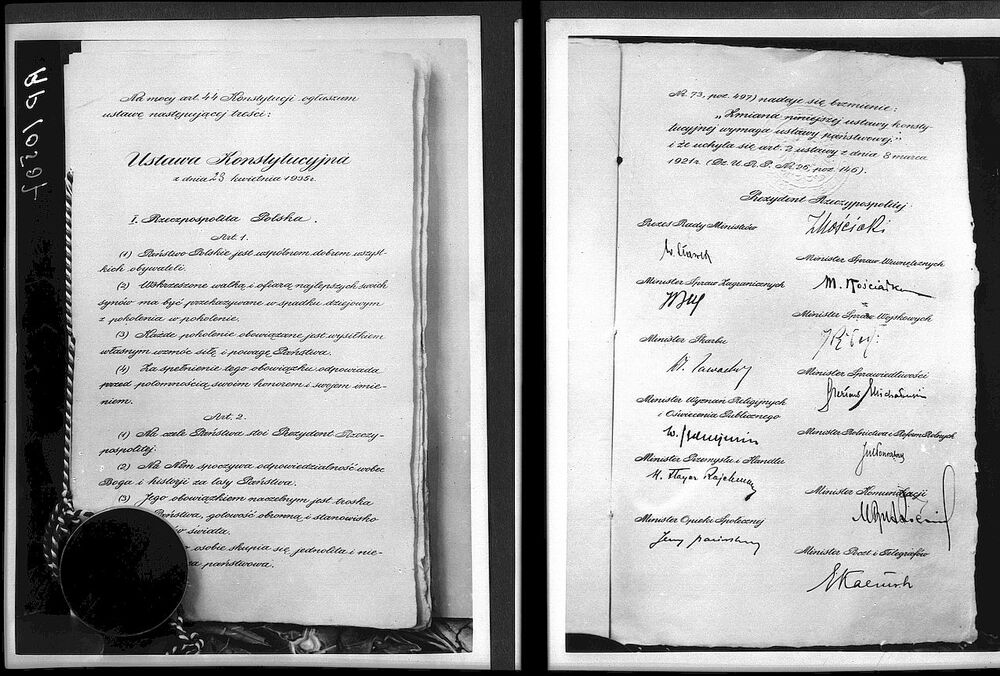 Na mocy art. 44 Konstytucji ogłaszam
ustawę następującej treści:
Ustawa Konstytucyjna
z dnia 23 kwietnia 1935 r.
I. Rzeczpospolita Polska.
Art. 1.
(1) Państwo Polskie jest wspólnem dobrem wszyst-
kich obywateli.
(2) Wskrzeszone walką i ofiarą najlepszych swoich
synów ma być przekazywane w spadku dziejowym
z pokolenia w pokolenie.
(3) Każde pokolenie obowiązane jest wysiłkiem
własnym wzmóc siłę i powagę Państwa.
(4) Za spełnienie tego obowiązku odpowiada
przed potomnością swoim honorem i swojem imie-
niem.
Art. 2.
(1) Na czele Państwa stoi Prezydent Rzeczy-
pospolitej.
(2) Na Nim spoczywa odpowiedzialność wobec
Boga i historji za losy Państwa.
(3) Jego obowiązkiem naczelnym jest troska
Państwa, gotowość obronną i stanowisko
świata.
osobie skupia się jednolita i nie-
państwowa.
Nr. 73, poz. 497) nadaje się brzmienie:
„Zmiana niniejszej ustawy konsty-
tucyjnej wymaga ustawy państwowej."
i że uchyla się art. 2 ustawy z dnia 3 marca
1921 r. (Dz. U. R. P. Nr. 26, poz. 146).
Prezydent Rzeczypospolitej
I Mościcki
Prezes Rady Ministrów
W. Sławek
Minister Spraw Wewnętrznych
M. Kościałkow
Minister Spraw Zagranicznych
Minister Spraw Wojskowych
Minister Skarbu
Minister Sprawiedliwości
Minister Wyznań Religijnych
i Oświecenia Publicznego
Minister Rolnictwa i Reform Rolnych
Minister Przemysłu i Handlu
H. Floyar Rajchman
Minister Komunikacji
Minister Opieki Społecznej
Minister Poczt i Telegrafów
EKaliński